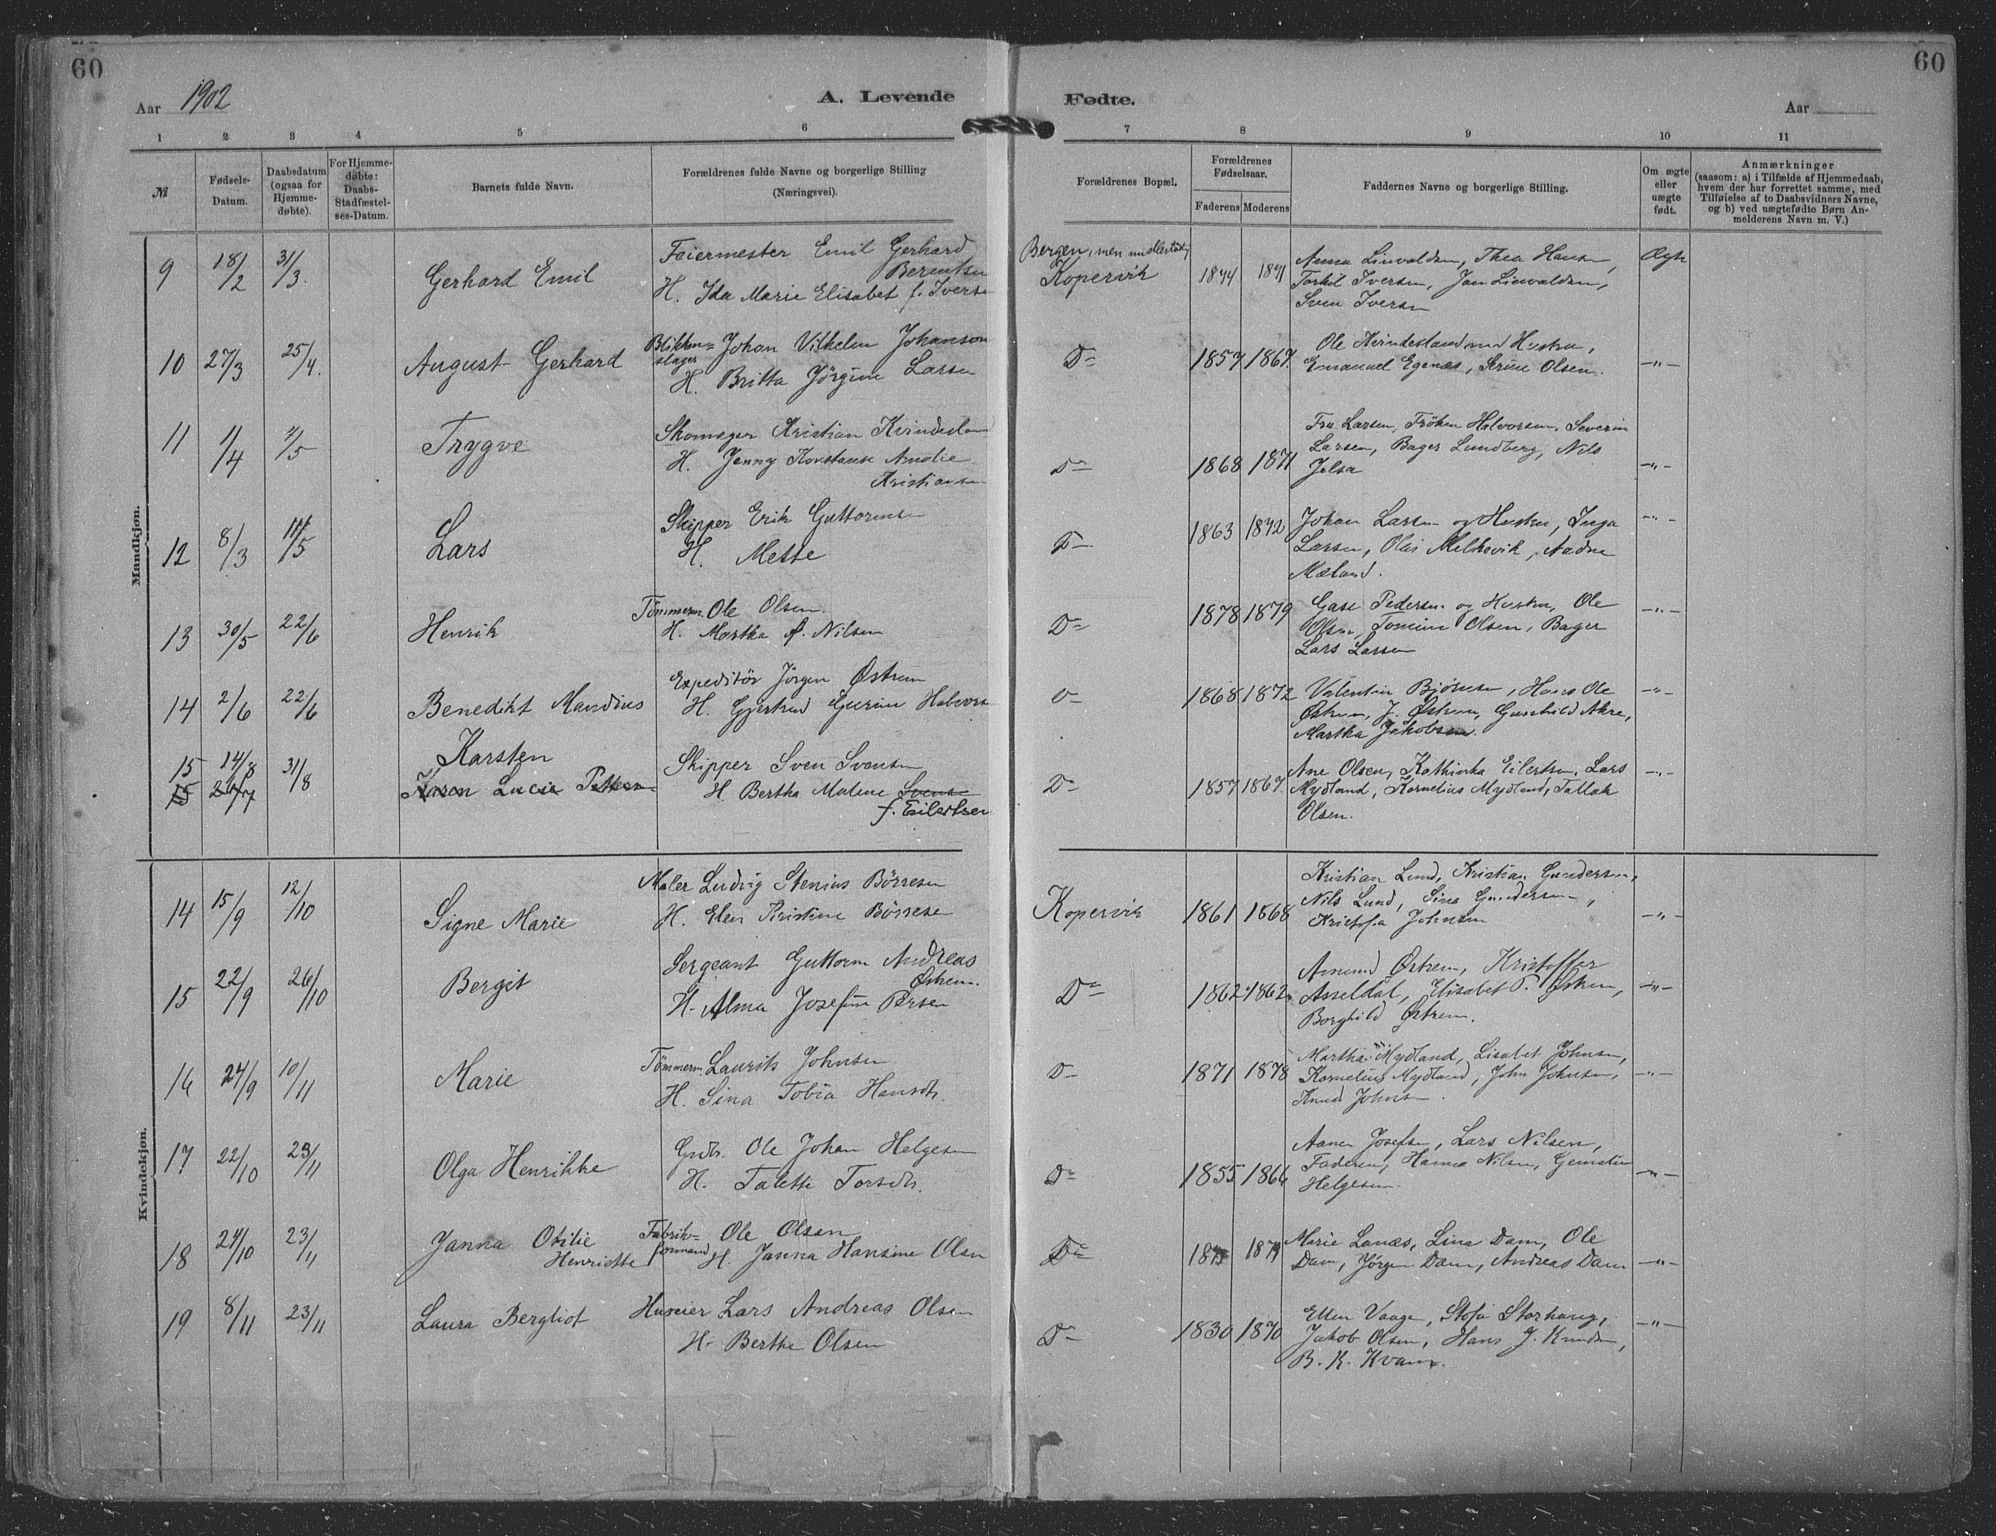 60
60
Aar 1902
A. Levende
Fødte.
Aar
1 2 3 4 5 6 7 8 9 10 11
№
Fødsels-
Datum.
Daabsdatum
(ogsaa for
Hjemme-
døbte).
For Hjemme-
døbte:
Daabs-
Stadfæstel-
ses-Datum.
Barnets fulde Navn.
Forældrenes fulde Navne og borgerlige Stilling
(Næringsvei).
Forældrenes Bopæl.
Forældrenes
Fødselsaar.
Faderens Moderens
Faddernes Navne og borgerlige Stilling.
Om ægte
eller
uægte
født.
Anmærkninger
(saasom: a) i Tilfælde af Hjemmedaab,
hvem der har forrettet samme, med
Tilføielse af to Daabsvidners Navne,
og b) ved uægtefødte Børn An-
melderens Navn m. V.)
Mandkjøn.
9 18/2 31/3. Gerhard Emil
Feiermester Emil Gerhard
Berentsen
H. Ida Marie Elisabet f. Iversen
Bergen, men
Kopervik
1874 1871
Anna Linvaldsen, Thea Hansen,
Torkil Iversen, Jan Linvaldsen,
Sven Iversen
Ægte
10 27/3 25/4. August Gerhard
Blikken=
slager
Johan Vilhelm Johanson
H. Britta Jørgine Larsen
D-
1857 1867.
Ole Kvindesland med Hustru,
Emanuel Egenæs, Serine Olsen.
-"-
11 1/4 4/5 Trygve
Skomager Kristian Kvindesland
H. Jenny Konstanse Amalie
Kristiansen
D-
1868 1871
Fru Larsen, Frøken Halvorsen, Severin
Larsen, Bager Lundberg, Nils
Jelsa
-"-
12 8/3 11/5 Lars
Skipper Erik Guttormsen
H. Mette
D-
1863 1872
Johan Larsen og Hustru, Inga
Larsen, Olai Melkevik, Aadne
Mæland.
-"-
13 30/5 22/6 Henrik
Tømmerm. Ole Olsen.
H. Martha f. Nilsen
D-
1878 1879
Gase Pedersen og Hustru, Ole
Olsen, Tomine Olsen, Bager
Lars Larsen
-"-
14 2/6 22/6 Benedikt Mandius
Expeditør Jørgen Østrem
H. Gjertrud Gurine Halvorsen
D-
1868 1872
Valentin Bjørnsen, Hans Ole
Østrem, J. Østrem, Gunhild Akre,
Martha Jakobsen.
-"-
15 14/8 31/8 Karsten
15 26/7 Karen Lucie Pettersen
Skipper Sven Svensen
H. Bertha Malene Svens
f. Eilertsen
D-
1857 1867.
Ane Olsen, Kathinka Eilertsen, Lars
Mydland, Kornelius Mydland, Tallak
Olsen.
-"-
Kvindekjøn.
14 15/9 12/10 Signe Marie
Maler Ludvig Stenius Børresen
H. Elen Kristine Børresen
Kopervik
1861 1868
Kristian Lund, Kristian Gundersen,
Nils Lund, Sina Gundersen,
Kristofa Johnsen
-"-
15 22/9 26/10 Bergit
Sergeant Guttorm Andreas
Østrem.
H. Alma Josefine Persen
D-
1862. 1862.
Amund Østrem, Kristoffer
Asseldal, Elisabet P. Østrem,
Borghild Østrem.
-"-
16 24/9 10/11 Marie
Tømmerm. Laurits Johnsen
H. Sina Tobia Hansdtr.
D-
1871 1878
Martha Mydland, Lisabet Johnsen,
Kornelius Mydland, John Johnsen,
Knud Johnsen.
-"-
17 22/10 23/11 Olga Henrikke
Grdb. Ole Johan Helgesen
H. Talette Torsdtr.
D-
1855 1864
Aanen Josefsen, Lars Nilsen,
Faderen, Hanna Nilsen,
Helgesen.
-"-
18 24/10 23/11 Janna Otilie
Henriette
Fabrik-
formand
Ole Olsen
H. Janna Hansine Olsen
D-
1875 1879
Marie Lanæs, Lina Dam, Ole
Dam, Jørgen Dam, Andreas Dam
-"-
19 8/11 23/11 Laura Bergliot
Huseier Lars Andreas Olsen
H. Berthe Olsen
D-
1830 1870
Ellen Vaage, Stofa Storhaug,
Jakob Olsen, Hans J. Knudsen,
B. K. Kvam.
-"-